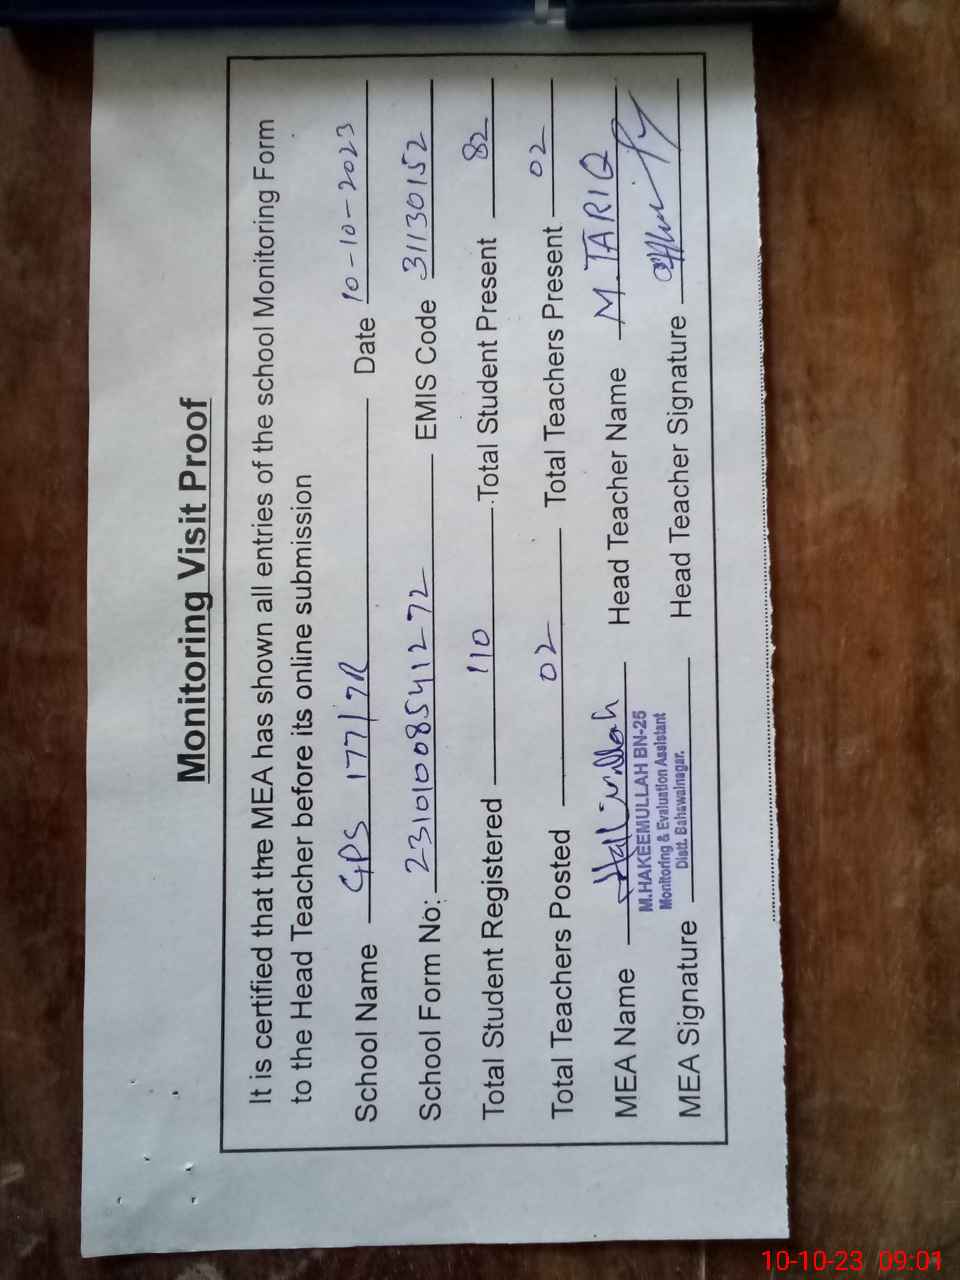 Monitoring Visit Proof
It is certified that the MEA has shown all entries of the school Monitoring Form
to the Head Teacher before its online submission
School Name GPS 177/7R Date 10-10-2023
School Form No: 2310100854 1272 EMIS Code 31130152
Total Student Registered 110 Total Student Present 82
Total Teachers Posted 02 Total Teachers Present 02
MEA Name Head Teacher Name M. TARIQ
M.HAKEEMULLAH BN-25
Monitoring & Evaluation Assistant
Distt. Bahawalnagar.
MEA Signature Head Teacher Signature
10-10-23 09:01